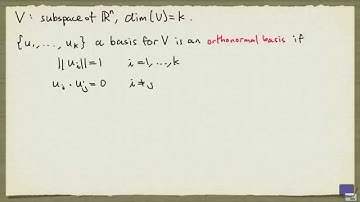 V : subspace of ℝⁿ, dim(V)=k.
{u₁, ..., uₖ} a basis for V is an orthonormal basis if
||uᵢ||=1 i=1,...,k
uᵢ · uⱼ=0 i≠j